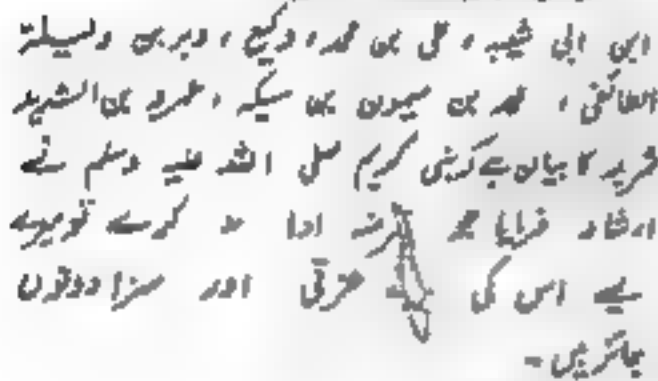 ابن ابی شیبہ ، علی بن محمد ، وکیع ، وبر بن ولسیلۃ
الطائفی ، محمد بن میمون بن سیکہ ، عمرو بن الشرید
شرید کا بیان ہے کہ نبی کریم صلی اللہ علیہ وسلم نے
ارشاد فرمایا جو ادا نہ کرے تو میرے
لیے اس کی عزتی اور سزا دونوں
جائز ہیں -